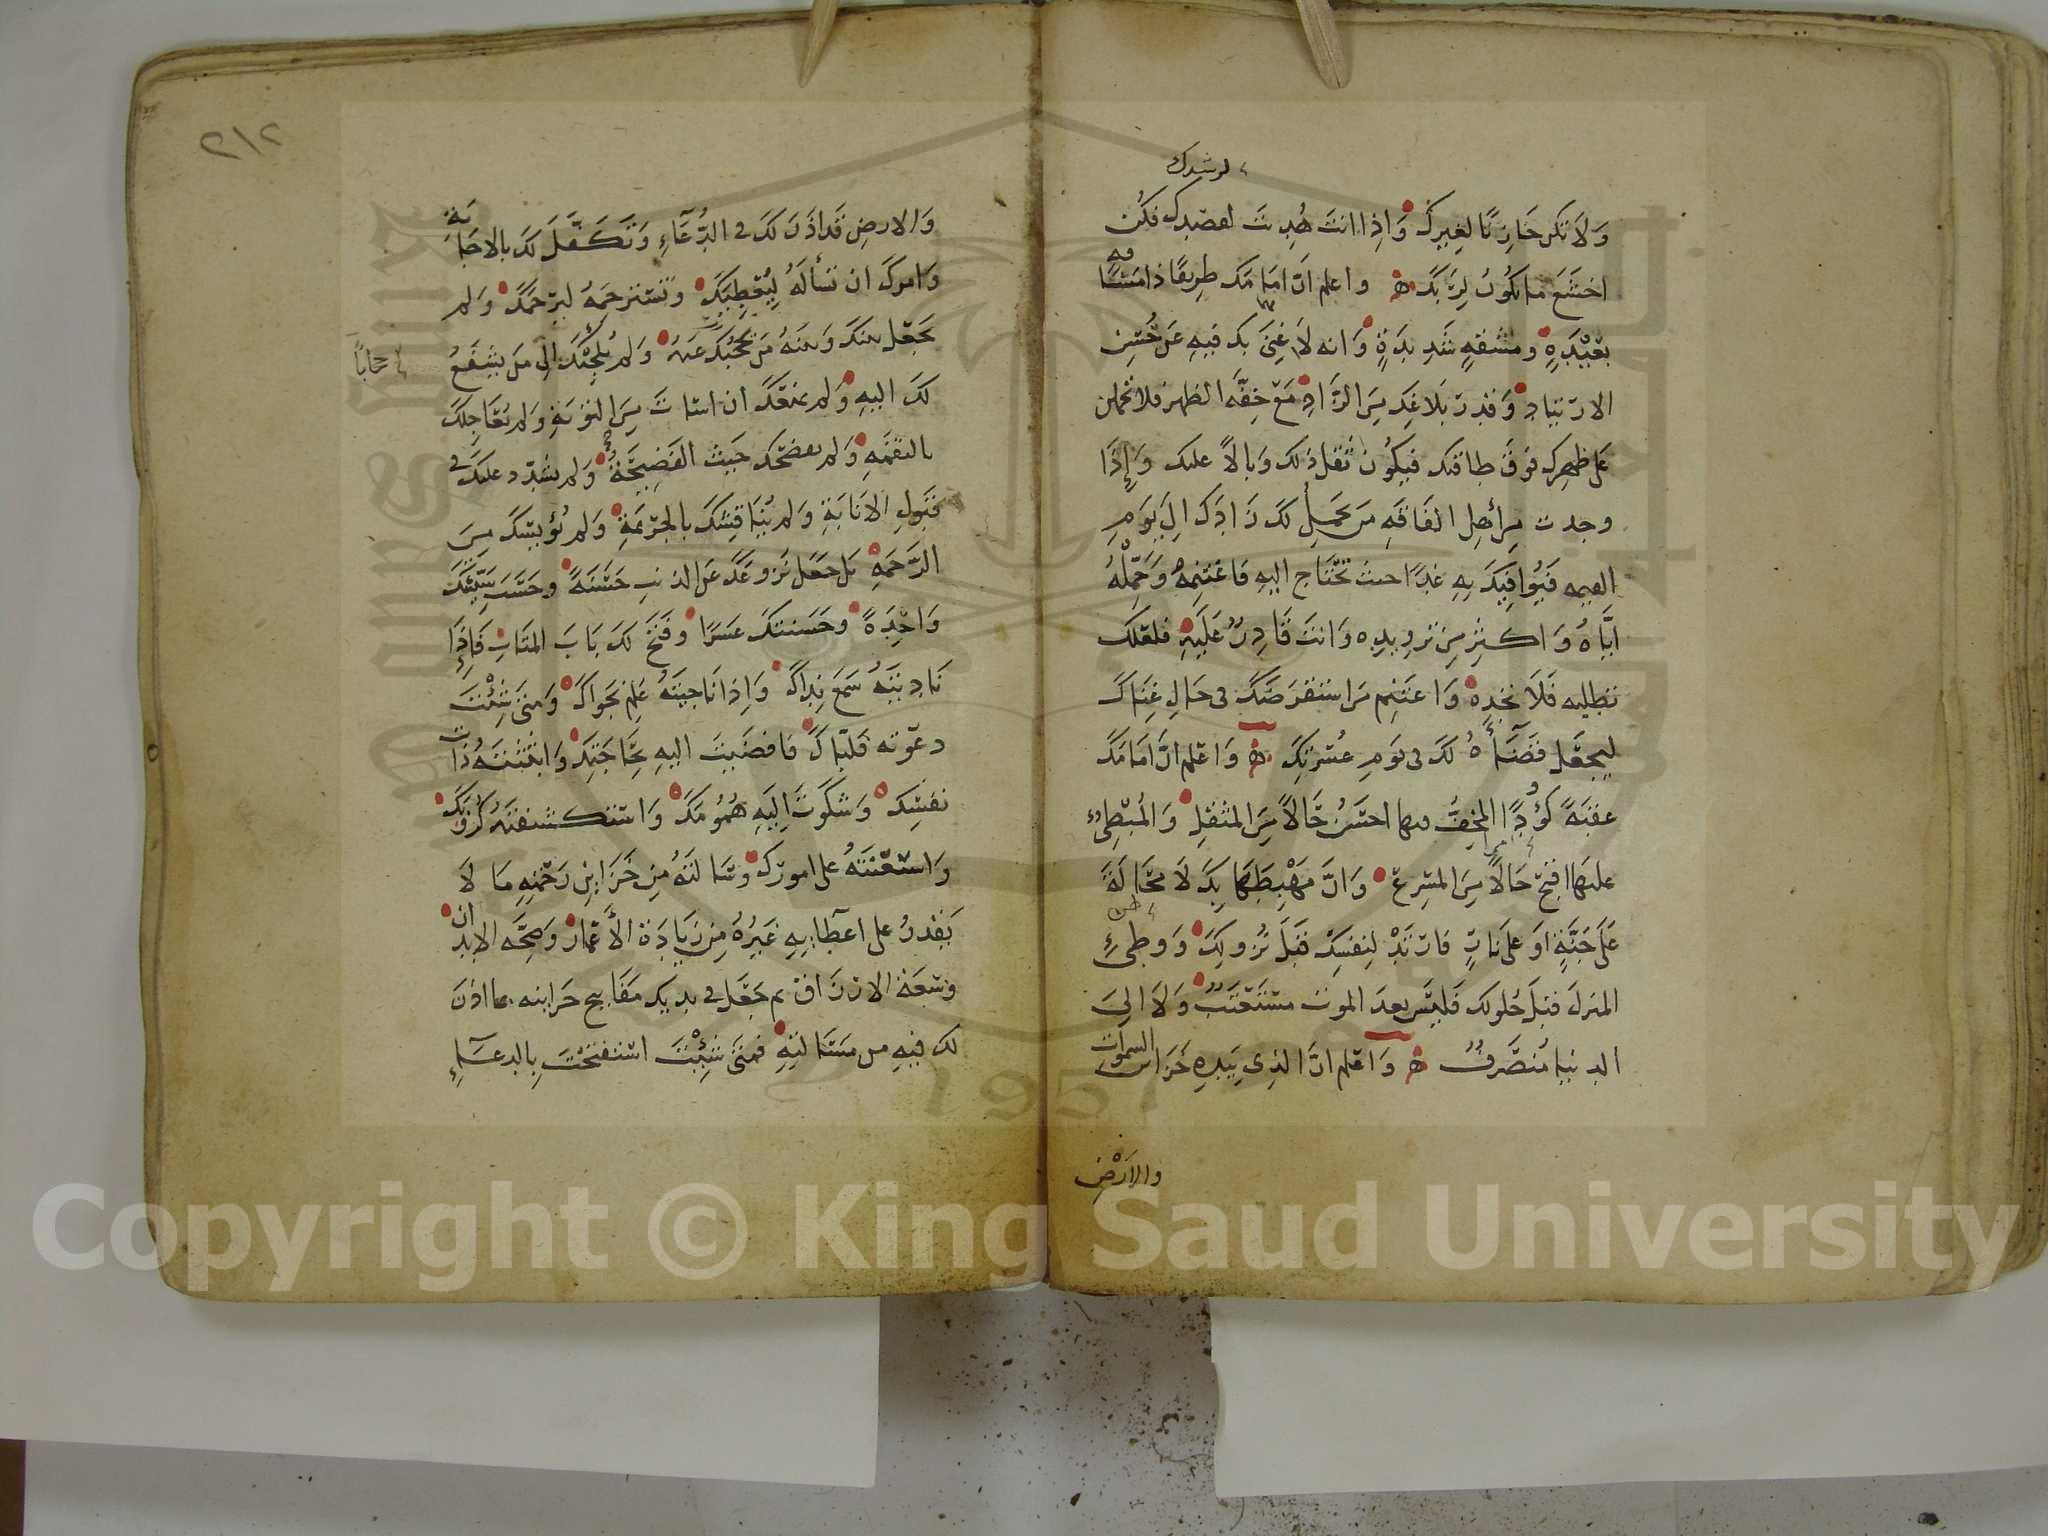 لرشدك
وَلَا تكن خَازِنًا لغَيرِكَ وَاِذا انتَ هُدِيتَ لقصدِك فكُن
اخشَعَ ما تكُونُ لِرَبِّكَ واعلم انَّ امَامَك طرِيقًا ذا مَسَافه
بَعِيْدَةٍ ومَشَقةٍ شَدِيدَةٍ وَانه لَا غِنَى بك فيهِ عَن حُسنِ
الارتيَادِ وَقدر بَلَاغِك مِنَ الزَّادِ مَعَ خِفَّه الظهر فلا تحملن
عَلى ظهرك فوقَ طاقتك فيكُونَ ثقل ذلك وَبالًا عليك وَاِذَا
وجدت مِن أهلِ الفَاقَهِ مَن يحَمِلُ لَكَ زَادَك اِلَى يَومِ
القيمه فيُوافِيكَ بِهِ غدًا حيث تحْتَاج اليهِ فاغتنِمهُ وَحَمِّلْهُ
ايَّاهُ وَاكثِر مِن تزوِيدِه وَانتَ قَادِرٌ عَلَيهِ فلعَلك
تطلبه فَلَا تجده وَاغتنِم مَن استقرَضَكَ في حَالِ غِنَاكَ
ليجعَل قضَآءَهُ لَكَ في يَومِ عُسْرتِكَ وَاعْلم انَّ امَامَكَ
عقبَةً كَؤُدًا المخِفُّ فيها احسَنُ حَالًا مِنَ المثقِلِ وَالمُبْطِئُ
عليهَا اقبَحُ حَالًا مِنَ المسْرِع وَانَّ مَهْبِطَهَا بِكَ لَا مَحَالَةَ
عَلَى جَنَّةٍ اوَ عَلى نارٍ فارتَدْ لِنفسِكَ قبْلَ نُزولِكَ وَوطِئِ
المنزلَ قبْلَ حُلولك فَليسَ بعدَ الموت مستَعْتَبٌ وَلَا اِلَى
الدنيا مُنصَرَفٌ وَاعْلم انَّ الذِي بِيَدِهِ خَزَائن السموات
والاَرْض
٢١٢
وَالارضِ قَد اذِنَ لكَ في الدُّعَاءِ وَتَكَفَّلَ لَكَ بالاجَابَةِ
وَامرك ان تسألَهُ لِيُعْطِيَكَ وتَسْترحِمَهُ ليرحَمَكَ وَلم
يَجعَل بينكَ وَبينهُ مَن يحجُبكَ عنهُ وَلم يُلجِئْكَ اِلى مَن يشفَعُ
حجابًا
لَكَ اليهِ وَلم يمنعْكَ ان اسَات مِنَ التوبَةِ وَلم يُعَاجِلكَ
بالنقمَهِ وَلم يفضَحْكَ حَيث الفَضِيحَةُ وَلم يشَدِّد عليكَ في
قبُولِ الانابَةِ وَلم يُنَاقِشكَ بالجَرِيمَةِ وَلم يُؤيِسْكَ مِنَ
الرَّحمَهِ بَل جَعَل نزوعَكَ عَنِ الذنبِ حَسَنَةً وحَسَبَ سيِّئتَكَ
وَاحِدَةً وحَسَنتكَ عَشرًا وفتَحَ لكَ بَابَ المتَابِ فَاِذَا
نَادَيتَهُ سَمِعَ نِدَاكَ وَاِذا ناجَيتَهُ عَلِم نجوَاكَ وَمتى شِئْتَ
دعَوته فلبَّاكَ فافضَيتَ اليهِ بحَاجَتِكَ وَابثَثتَهُ ذَات
نفسِك وَشكَوتَ اِليَهِ هُمُومَكَ وَاستكشفتَهُ كُرُوبَكَ
وَاستَعَنتَهُ على امورك وسَالتَهُ مِن خَزَاينِ رَحْمتِهِ مَا لَا
يَقدرُ على اعطايهِ غيرُهُ مِن زيَادَة الأَعْمار وَصِحَّه الابدان
وَسَعَة الارزاق ثم جَعَل في يديك مَفَاتيح خزاينه بما اذن
لك فيهِ من مَسَالتِهِ فمَتَى شِئْتَ استفتَحْتَ بِالدعَآءِ
Copyright © King Saud University